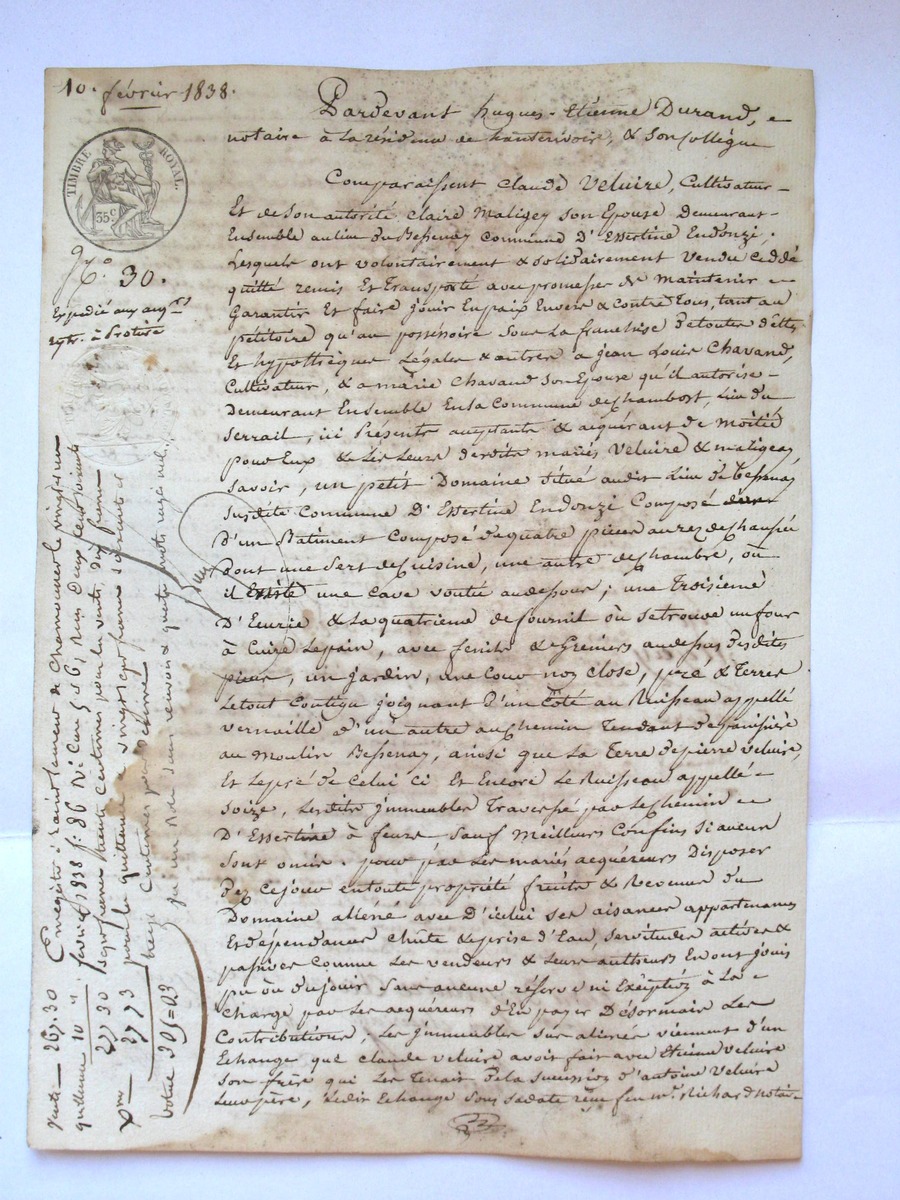 10. février 1838.
Pardevant hugues-Etienne Durand,
notaire à La résidence de hauterivoir, & son Collègue
TIMBRE ROYAL.
35c.
No. 30.
Expédié aux
à Protiere
Comparaissent Claude Veluire, Cultivateur
Et de Son autorité, Claire Maligey son Epouse Demeurant
Ensemble au lieu Du Bessenay Commune D'Essertine Endonzi;
Lesquels ont volontairement & solidairement vendu cedé
quitté remis Et transporté avec promesse de Maintenir
Garantir Et faire jouir En paix Envers & Contre Tous, tant au
pétitoire qu'au possessoire Sous La franchise De toutes Dettes
Et hypothèques Légales & autres à jean Louis Chavand,
Cultivateur, & a marie Chavand son Epouse qu'il autorise
Demeurant Ensemble En la Commune de Chambost, Lieu du
Serrail, ici Présents acceptants & aquérant de Moitié
pour Eux & Les Leurs desdits mariés Veluire & maligey
Savoir, un petit Domaine situé audit Lieu de Bessenay
Susdite Commune D'Essertine Endonzi Composé
D'un Bâtiment Composé De quatre pièces au rez de chaussée
Dont une Sert de Cuisine, une autre de Chambre, où
il Existe une cave voutée au dessous; une Troisième
D'Ecurie & La quatrieme de fournil où se trouve un four
à Cuire Le pain, avec fenils & Greniers au dessus Desdites
pièces, un jardin, une Cour non close, pré & Terre
Le tout Contigu joignant D'un Coté au Ruisseau appellé
vernaille D'un autre au Chemin Tendant de panissière
au Moulin Bessenay, ainsi que La Terre de pierre Veluire,
Et Le pré de Celui ci Et Encore Le Ruisseau appellé
Soize, Lesdits jmmeubles Traversés par Le Chemin
D'Essertine à feurs Sauf Meilleurs Confins Si aucun
Sont omis. pour par Les mariés acquéreurs Disposer
Dez Ce jour en toute propriété fruits & Revenus Du
Domaine aliéné avec D'icelui ses aisances appartenances
Et dépendances Chûte & prise d'Eau, Servitudes actives &
passives Comme Les vendeurs & Leurs autheurs En ont joui
pu ou du jouir Sans aucune réserve ni Exception à La
Charge par Les acquéreurs d'En payer Désormais Les
Contributions; Les jmmeubles Sus aliénés viennent d'un
Echange que Claude Veluire avoit fait avec Etienne Veluire
Son frère qui Les Tenait De la succession d'antoine Veluire
Leur père, Ledit Echange Sous sa date reçu feu Me. Richard notaire
Enregistré à Saint Laurent de Chamousset le vingt un
février 1838 f: 86 Ro Cases 5 & 6, reçu Deux cent soixante
sept francs trente centimes pour la vente, dix francs
pour la quittance & vingt sept francs soixante &
treize Centimes pour décime
vente — 267. 30
quittance 10 "
277 30
Xme — 27 73
Total 305=03